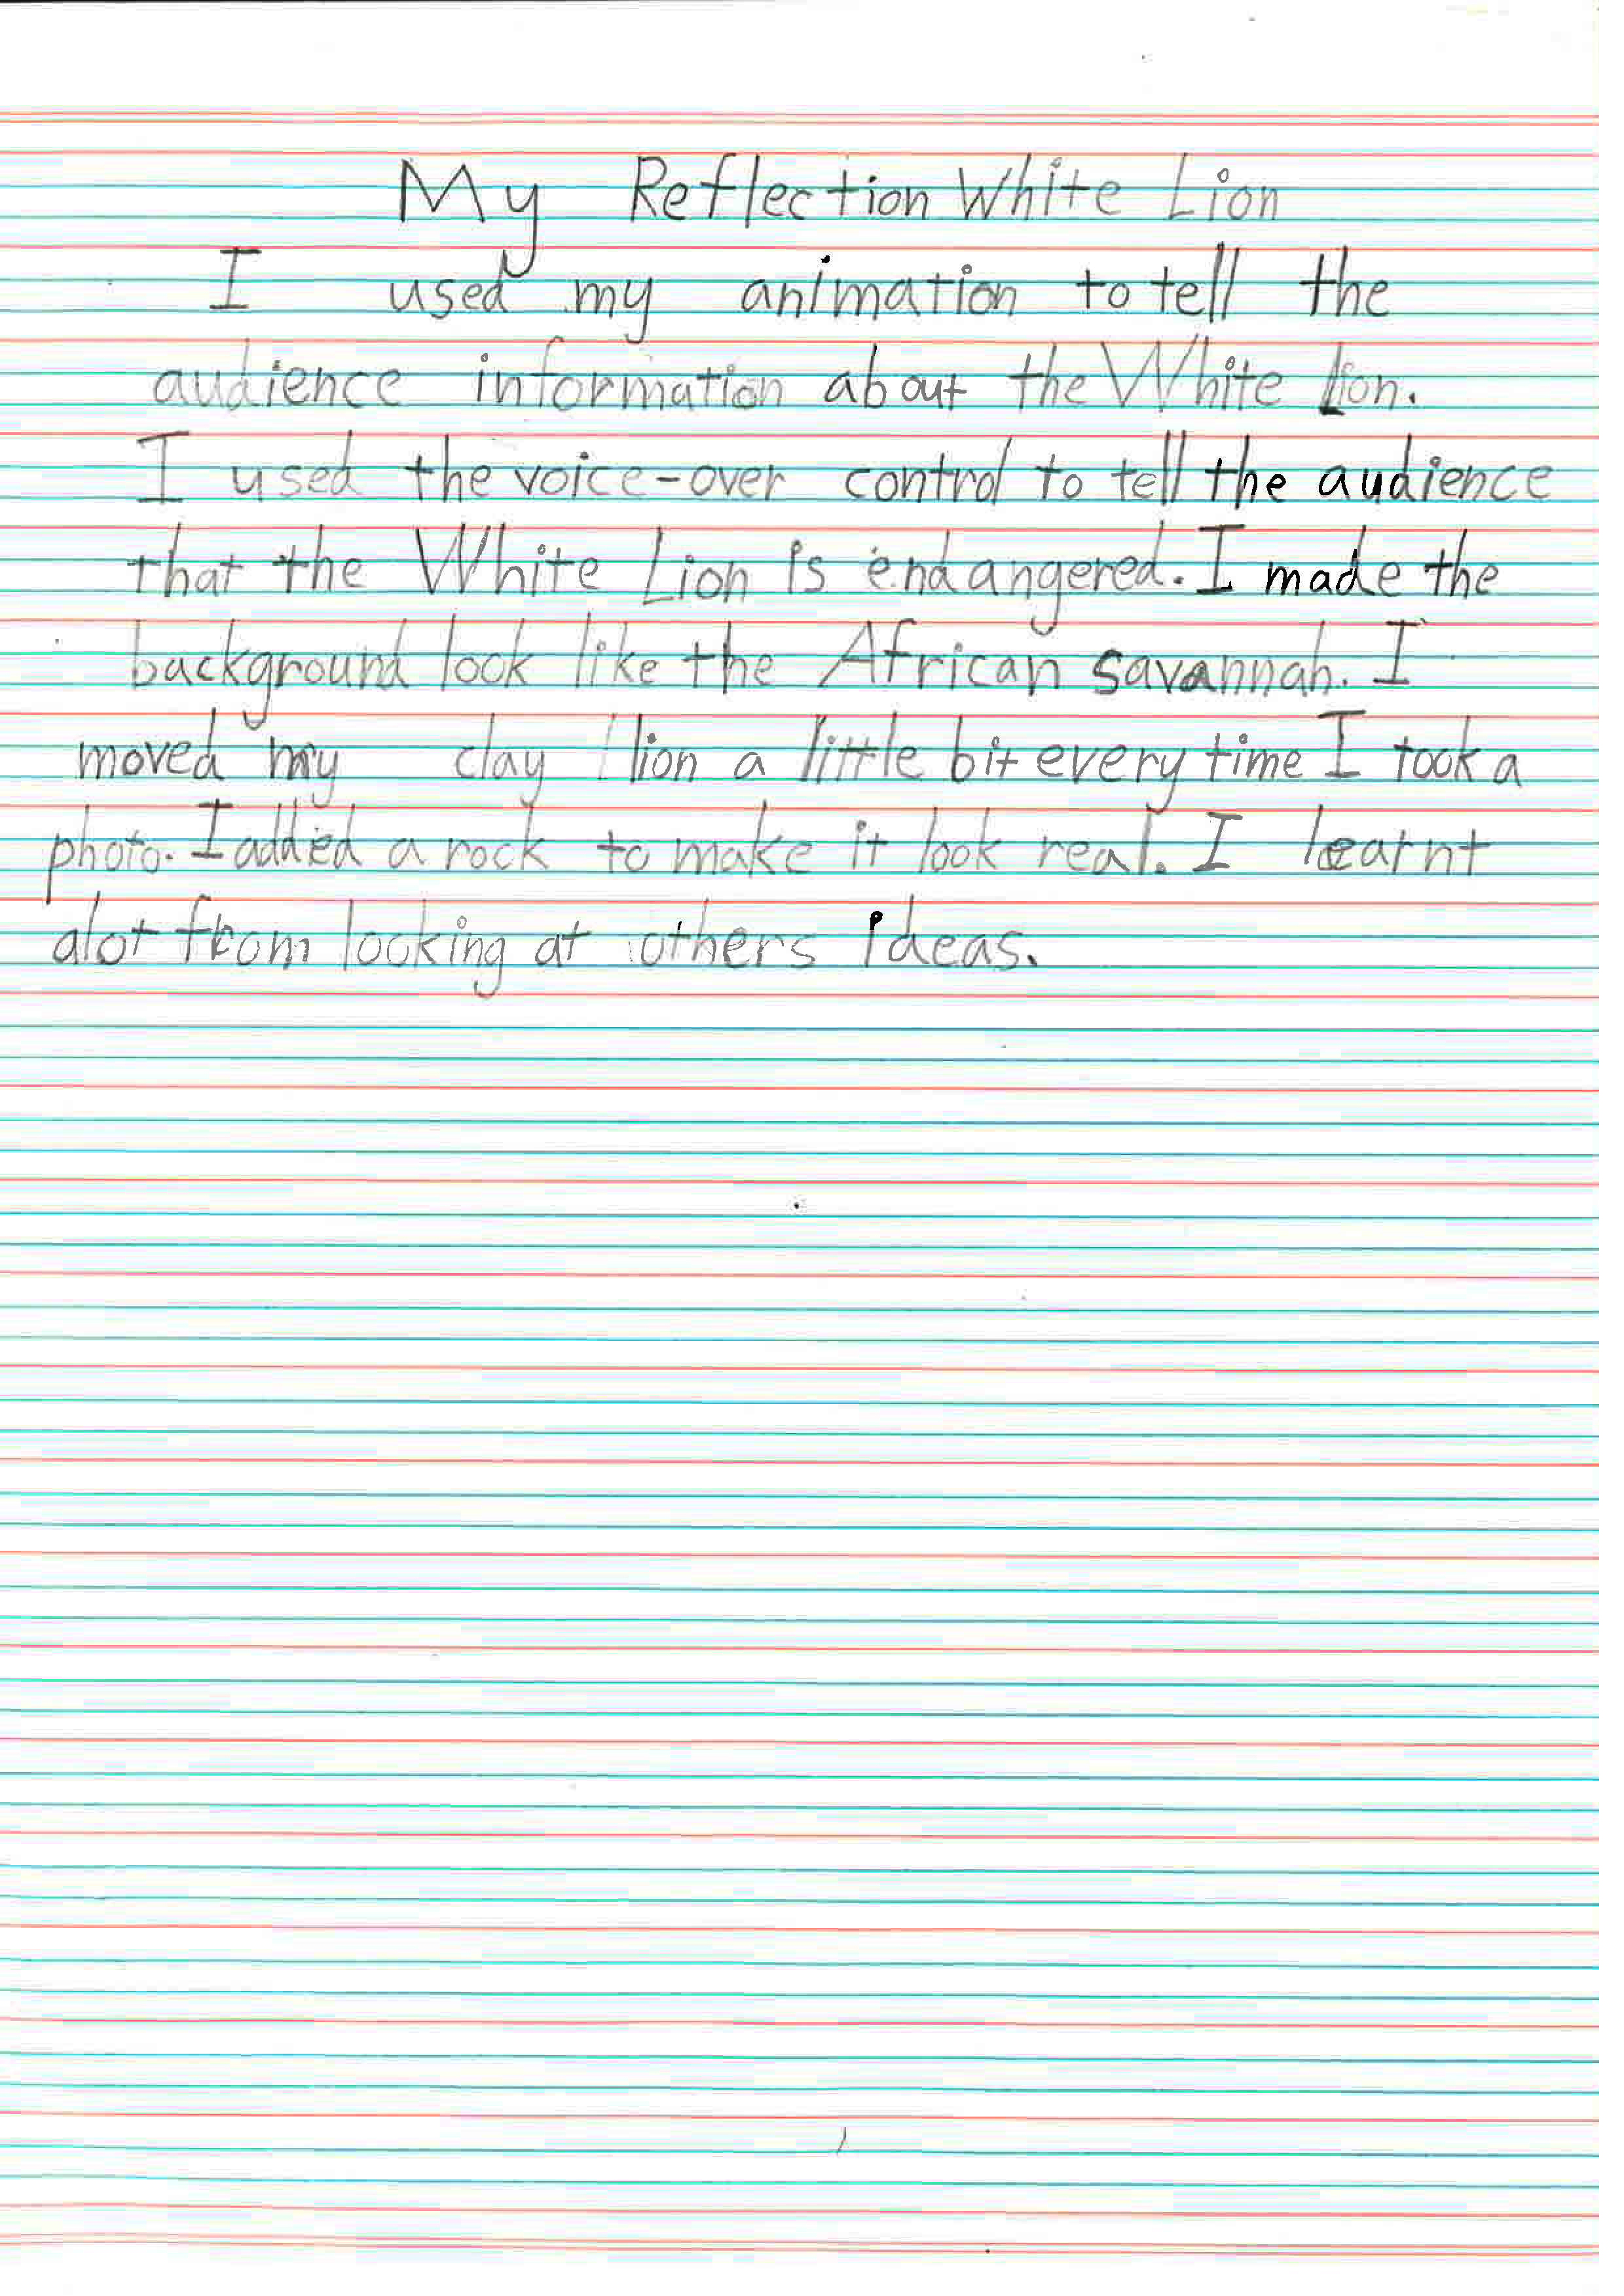 My Reflection White Lion
I used my animation to tell the
audience information about the White Lion.
I used the voice-over control to tell the audience
that the White Lion is endangered. I made the
background look like the African savannah. I
moved my clay lion a little bit every time I took a
photo. I added a rock to make it look real. I learnt
alot from looking at others ideas.